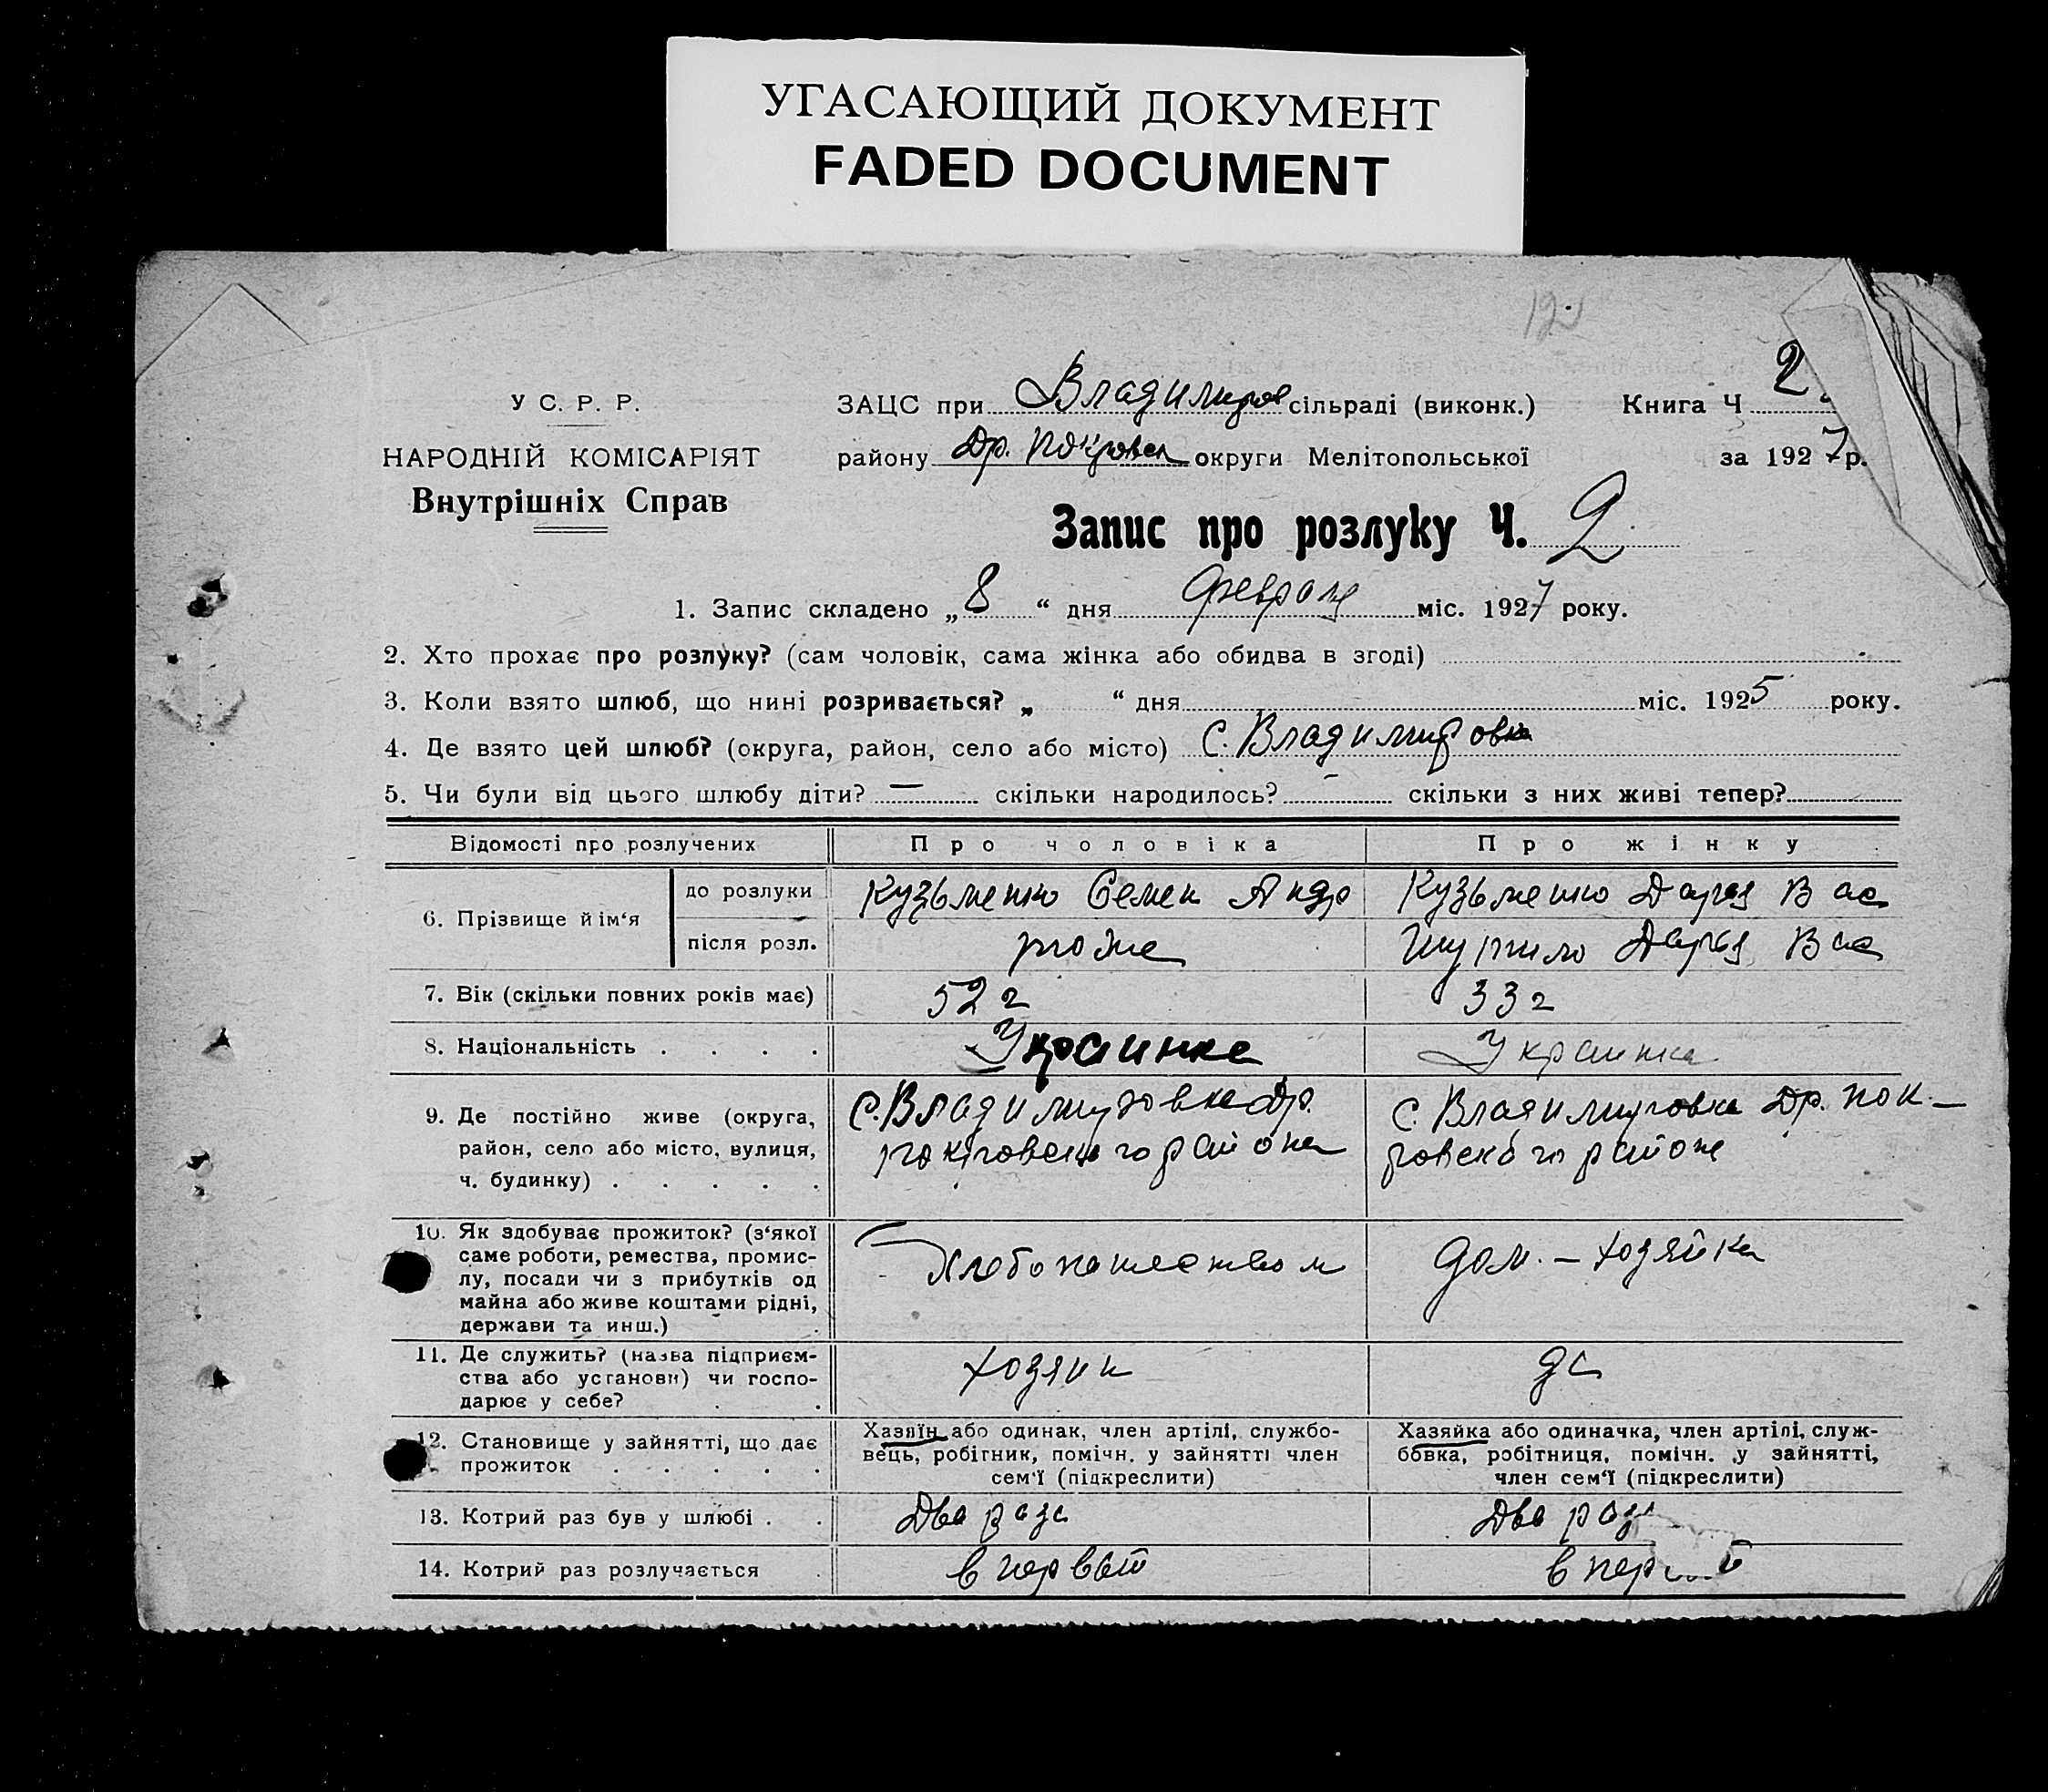 УГАСАЮЩИЙ ДОКУМЕНТ
FADED DOCUMENT
У С. Р. Р.
НАРОДНІЙ КОМІСАРІЯТ
Внутрішніх Справ
ЗАЦС при Владимиров сільраді (виконк.) Книга Ч 2
району Др. Покровск округи Мелітопольської за 1927р.
Запис про розлуку Ч. 2
1. Запис складено „8“ дня февраля міс. 1927 року.
2. Хто прохає про розлуку? (сам чоловік, сама жінка або обидва в згоді)
3. Коли взято шлюб, що нині розривається? „ “ дня міс. 1925 року.
4. Де взято цей шлюб? (округа, район, село або місто) С. Владимировка
5. Чи були від цього шлюбу діти? — скільки народилось? - скільки з них живі тепер?
Відомості про розлучених Про чоловіка Про жінку
6. Прізвище й ім‘я до розлуки Кузьменко Семен Андр Кузьменко Дарья Вас
після розл. тоже Шутило Дарья Вас
7. Вік (скільки повних років має) 52 г 33 г
8. Національність . . . . Украинка Украинка
9. Де постійно живе (округа, район, село або місто, вулиця, ч. будинку) . . . . .
С. Владимировка Др.
покровского района
С. Владимировка Др. пок-
ровского района
10. Як здобуває прожиток? (з‘якої
саме роботи, ремества, промис-
лу, посади чи з прибутків од
майна або живе коштами рідні,
держави та инш.)
Хлебопашеством
дом. - хозяйка
11. Де служить? (назва підприєм-
ства або установи) чи госпо-
дарює у себе?
хозяин
12. Становище у зайнятті, що дає
прожиток . . . . .
Хазяїн або одинак, член артілі, службо-
вець, робітник, помічн. у зайнятті член
сем‘ї (підкреслити)
Хазяйка або одиначка, член артілі, служ-
бовка, робітниця, помічн. у зайнятті,
член сем‘ї (підкреслити)
13. Котрий раз був у шлюбі . . Два раза Два раза
14. Котрий раз розлучається . в первый в первый